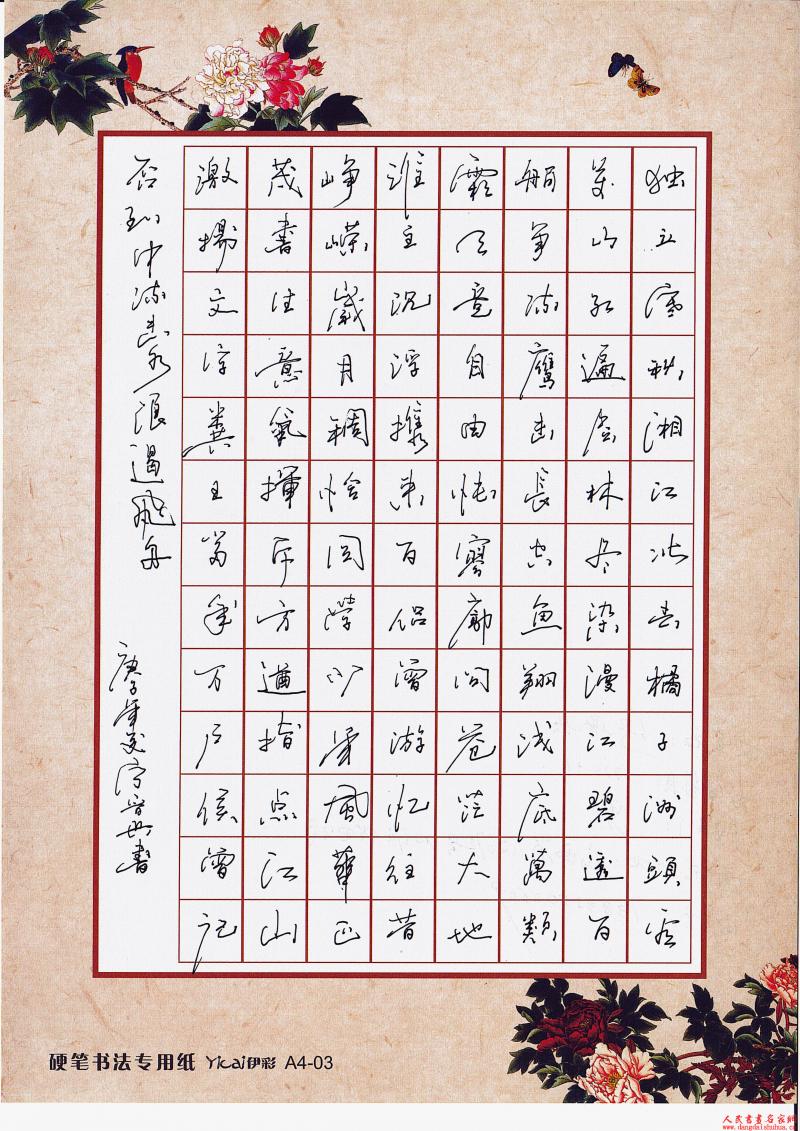 独立寒秋湘江北去橘子洲頭看
万山红遍层林尽染漫江碧透百
舸争流鹰击長空鱼翔浅底萬類
霜天竞自由怅寥廓问苍茫大地
谁主沉浮携来百侣曾游忆往昔
峥嵘歲月稠恰同学少年風華正
茂書生意氣揮斥方遒指点江山
激揚文字糞土当年万户侯曾记
否到中流击水浪遏飛舟
庚子年夏書
硬笔书法专用纸 Yicai伊彩 A4-03
人民書畫名家網
www.dangdaishuhua.c